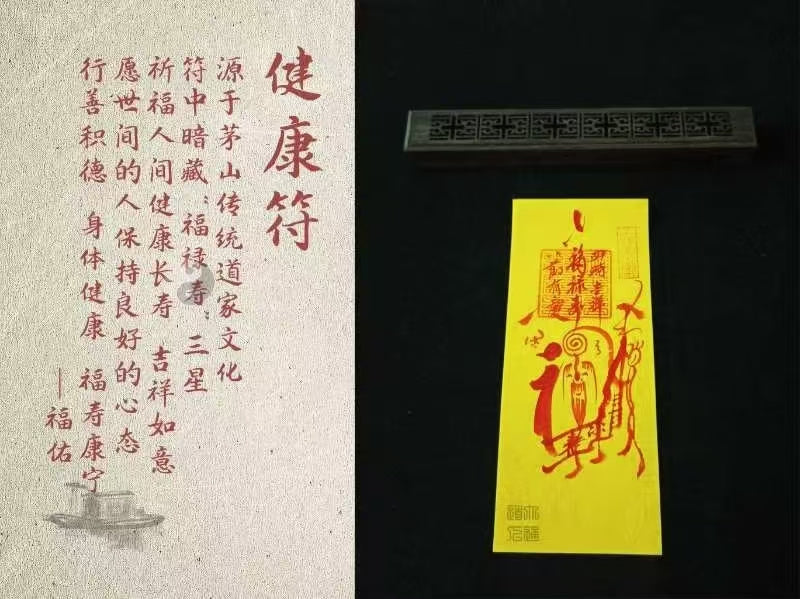 健康符
源于茅山传统道家文化
符中暗藏“福禄寿”三星
祈福人间健康长寿 吉祥如意
愿世间的人保持良好的心态
行善积德 身体健康 福寿康宁
——福佑
即時吉祥
福禄寿